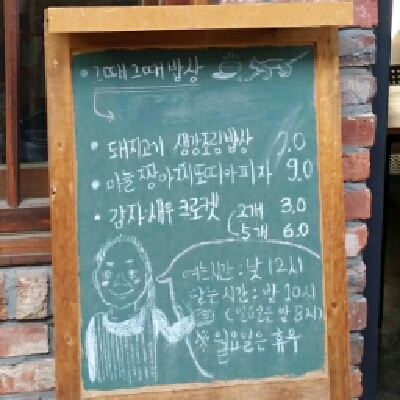 • 그때그때밥상
• 돼지고기 생강조림밥상 7.0
• 마늘쫑아찌또띠아피자 9.0
• 감자·새우 크로켓 2개 3.0
5개 6.0
여는시간 : 낮 12시
닫는시간 : 밤 10시
(일요일은 밤 8시)
※ 월요일은 휴무